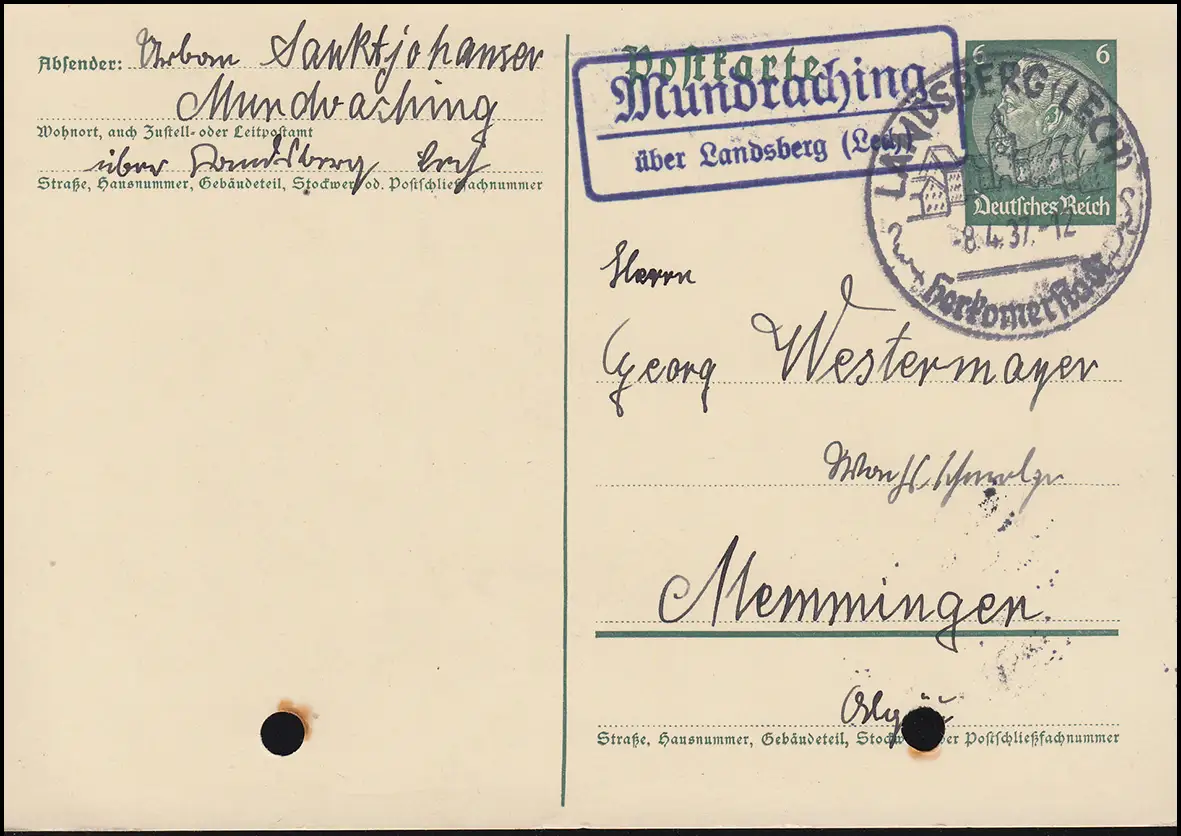 Absender: Urban Sanktjohanser
Mundraching
Wohnort, auch Zustell- oder Leitpostamt
über Landsberg Lech
Straße, Hausnummer, Gebäudeteil, Stockwerk od. Postschließfachnummer
Postkarte
Mundraching
über Landsberg (Lech)
6 6
Deutsches Reich
LANDSBERG (LECH)
-8.4.37.-12
Herkomerstadt
Herrn
Georg Westermayer
Memmingen.
Straße, Hausnummer, Gebäudeteil, Stockwerk oder Postschließfachnummer